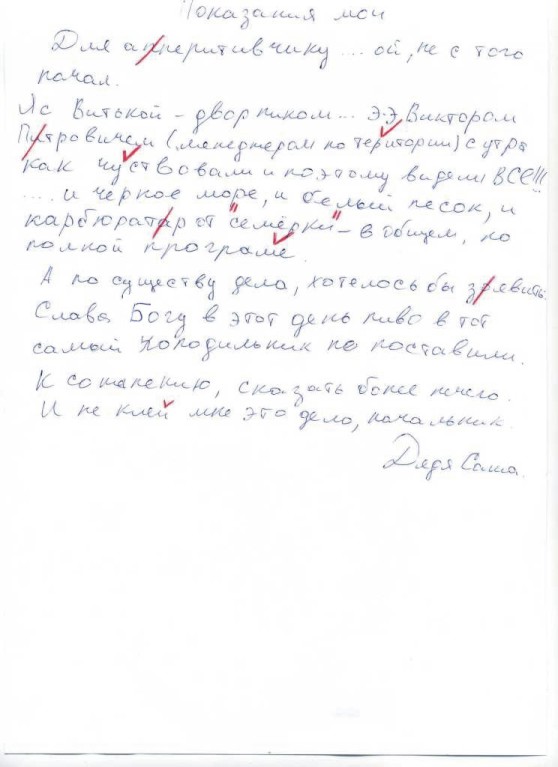 Показания мои
Для апперитивчику... ой, не с того
начал.
Я с Витькой – дворником... Э.Э Виктором
Питровичем (менеджером по територии) с утра
как чуствовали и поэтому видели ВСЁ!!!
.... и чёрное море, и белый песок, и
карбюратар от "семёрки" – в общем, по
полной програме.
А по существу дела, хотелось бы заявить:
Слава Богу в этот день пиво в тот
самый холодильник не поставили.
К сожалению, сказать более нечего.
И не клей мне это дело, начальник.
Дядя Саша.